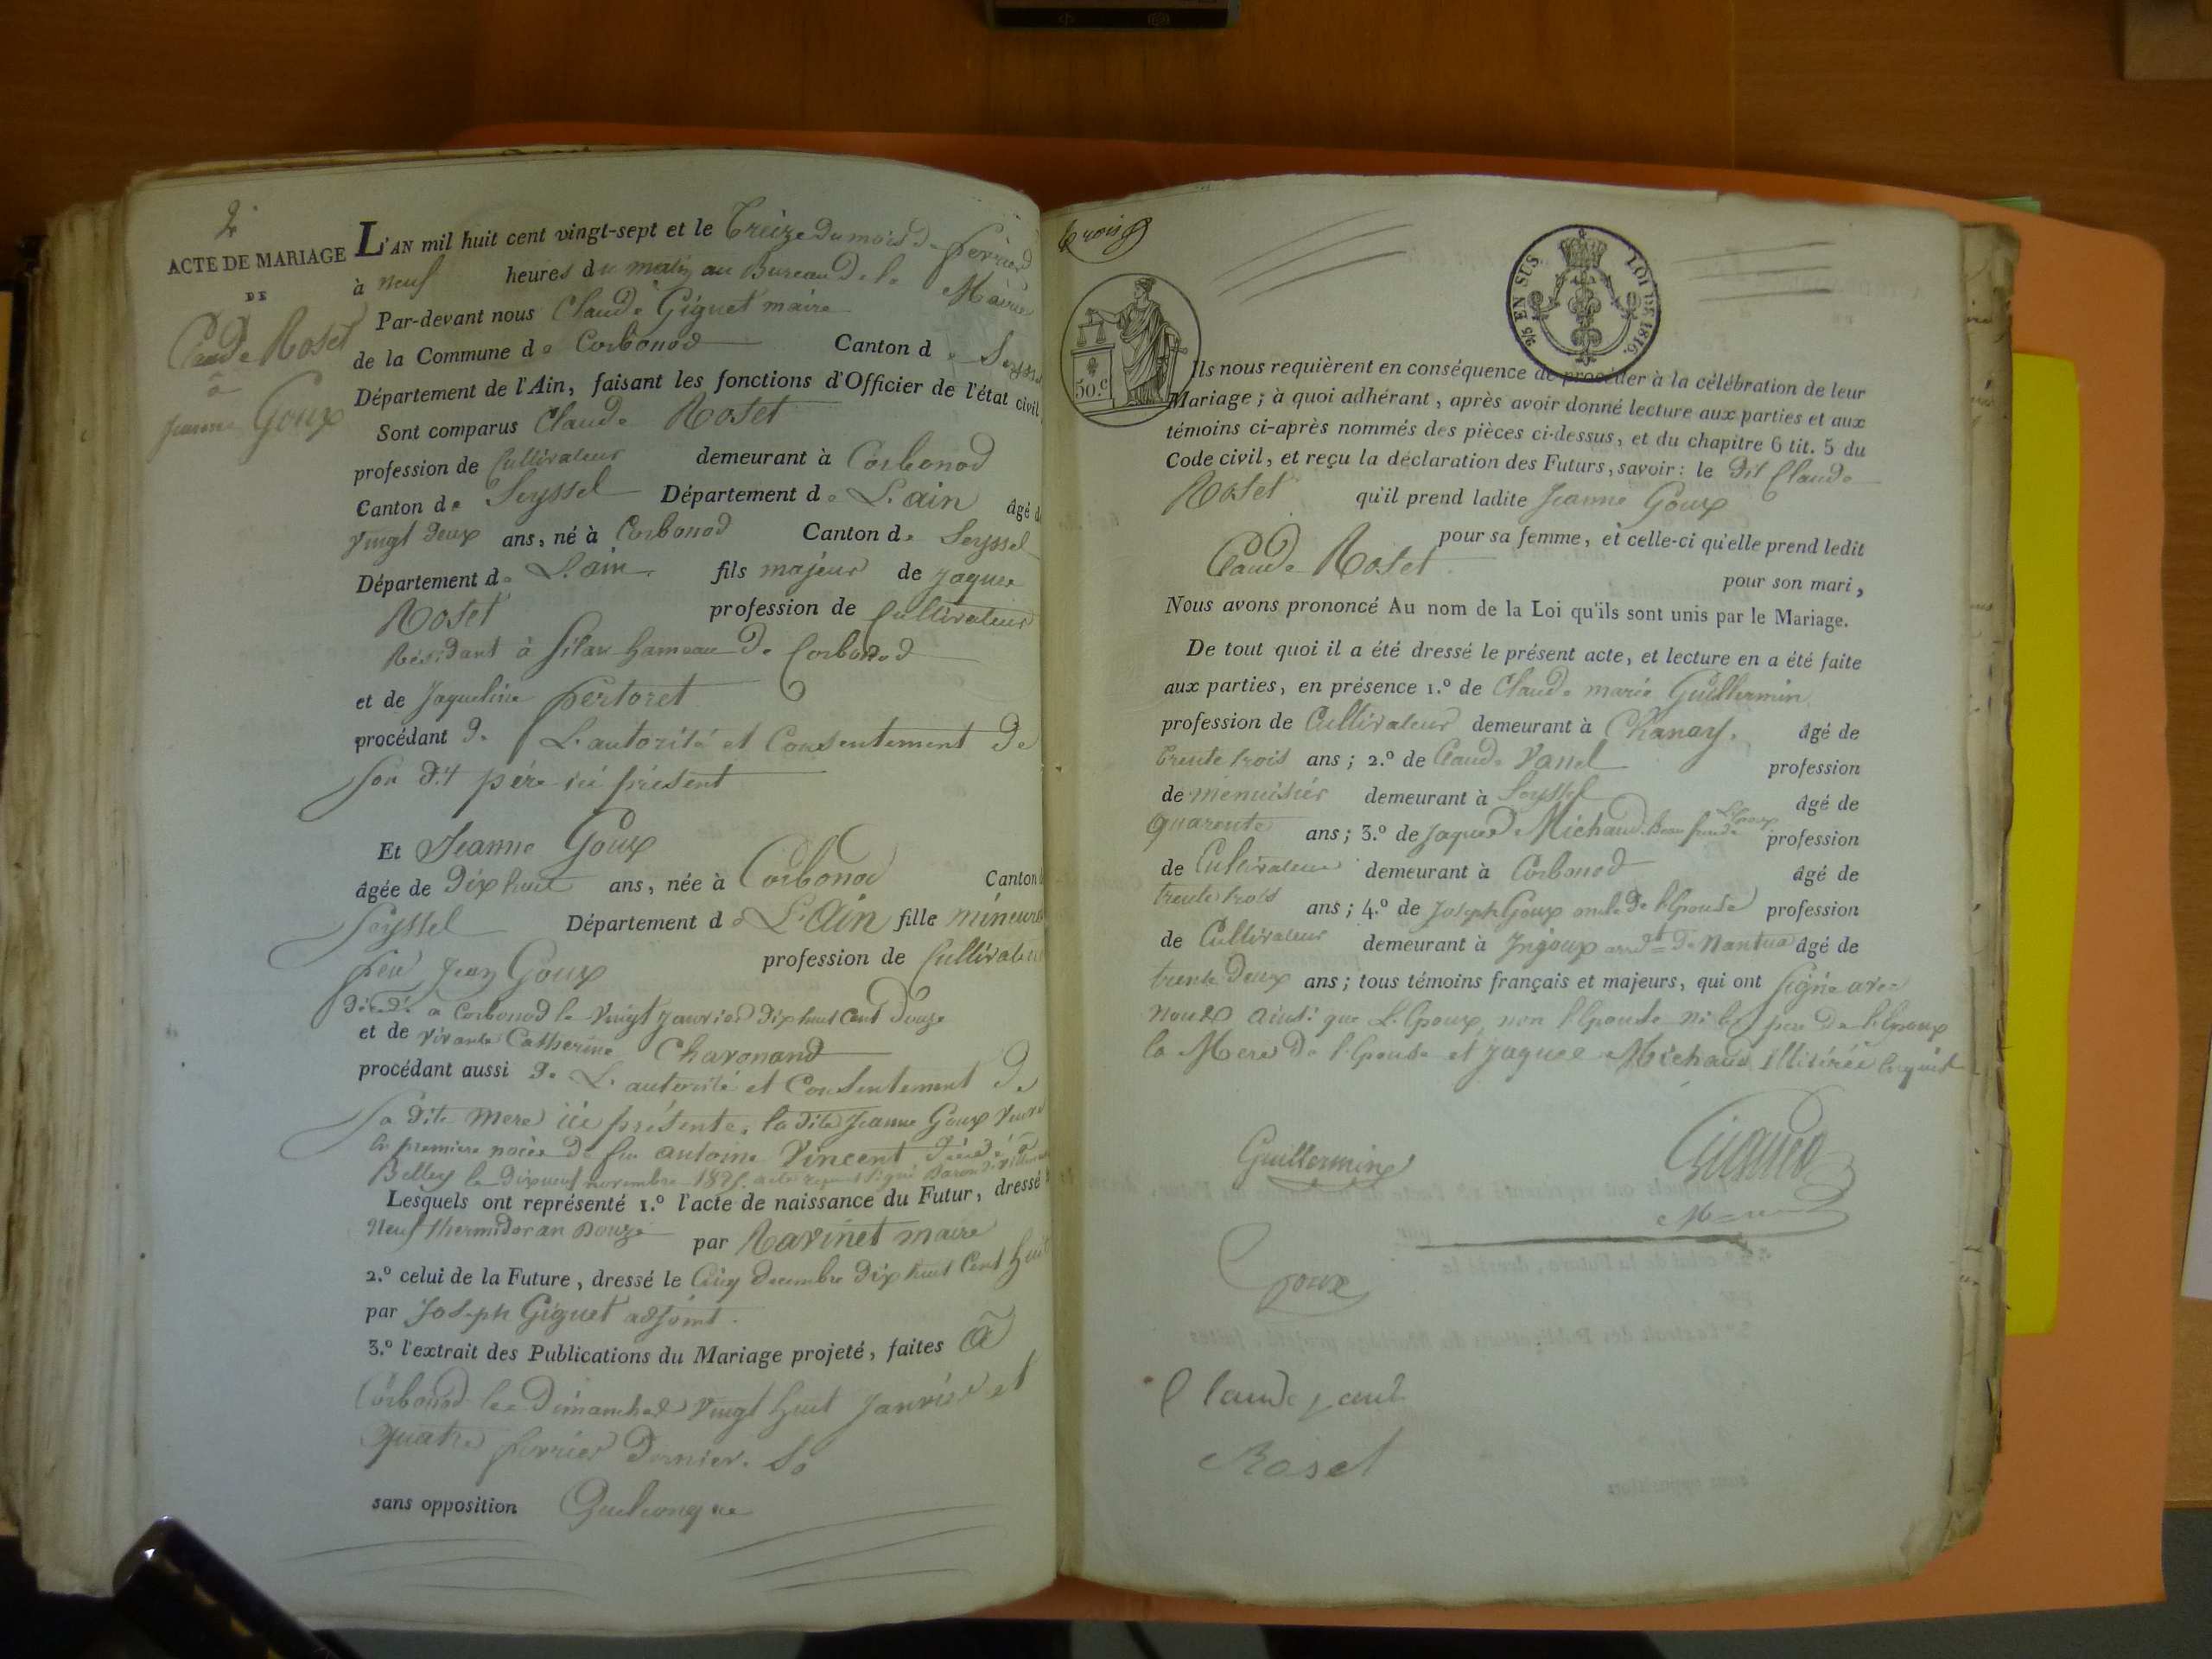 2.e
ACTE DE MARIAGE
DE
Claude Roset
à
Jeanne Goux
L'AN mil huit cent vingt-sept et le Treize du mois de fevrier
à neuf heures du matin au Bureau de la Mairie
Par-devant nous Claude Giguet maire
de la Commune de Corbonod Canton de Seyssel
Département de l'Ain, faisant les fonctions d'Officier de l'état civil
Sont comparus Claude Roset
profession de Cultivateur demeurant à Corbonod
Canton de Seyssel Département de L'ain âgé de
vingt deux ans, né à Corbonod Canton de Seyssel
Département de L'ain fils majeur de Jaques
Roset profession de Cultivateur
Résidant à Silan hameau de Corbonod
et de Jaqueline pertoret
procédant de L'autorité et Consentement de
son dit père ici présent
Et Jeanne Goux
âgée de Dix huit ans, née à Corbonod Canton
Seyssel Département de L'Ain fille mineure
feu Jean Goux profession de Cultivateur
décédé à Corbonod le vingt janvier dix huit cent Douze
et de vivante Catherine Charonand
procédant aussi de L'autorité et Consentement de
sa dite mere ici présente, la dite Jeanne Goux veuve
en premiere noces de feu antoine Vincent décédé à
Belley le dix neuf novembre 1825. signé Baron
Lesquels ont représenté 1.º l'acte de naissance du Futur, dressé
neuf thermidor an Douze par Ravinet maire
2.º celui de la Future, dressé le Cinq decembre dix huit cent huit
par Joseph Giguet adjoint.
3.º l'extrait des Publications du Mariage projeté, faites à
Corbonod les Dimanches vingt huit Janvier et
quatre fevrier dernier.
sans opposition Quelconque
trois
50.c
2/5 EN SUS. LOI DE 1816.
Ils nous requièrent en conséquence de procéder à la célébration de leur
Mariage; à quoi adhérant, après avoir donné lecture aux parties et aux
témoins ci-après nommés des pièces ci-dessus, et du chapitre 6 tit. 5 du
Code civil, et reçu la déclaration des Futurs, savoir: le dit Claude
Roset qu'il prend ladite Jeanne Goux
pour sa femme, et celle-ci qu'elle prend ledit
Claude Roset
pour son mari,
Nous avons prononcé Au nom de la Loi qu'ils sont unis par le Mariage.
De tout quoi il a été dressé le présent acte, et lecture en a été faite
aux parties, en présence 1.º de Claude marie Guillermin
profession de Cultivateur demeurant à Chanay. âgé de
trente trois ans; 2.º de Claude Vanel profession
de menuisier demeurant à Seyssel âgé de
quarente ans; 3.º de Jaques Michaud Beau frere de L'Epoux profession
de Cultivateur demeurant à Corbonod âgé de
trente trois ans; 4.º de Joseph Goux oncle de l'Epouse profession
de Cultivateur demeurant à Injoux arrd.t de Nantua âgé de
trente Deux ans; tous témoins français et majeurs, qui ont signé avec
nous ainsi que L'Epoux, non l'Epouse ni le pere de l'Epoux
la Mere de l'Epouse et Jaques Michaud Illitérés Enquis
Guillermin
Giguet
Maire
Goux
Claude
Roset